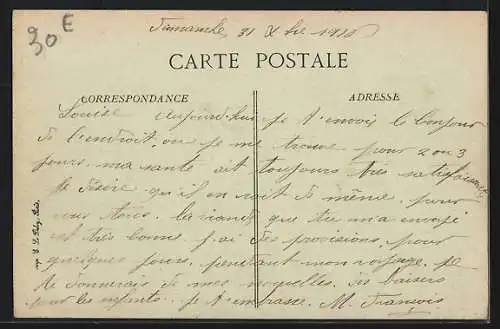 30 E
Dimanche 31 Xbre 1916
CARTE POSTALE
CORRESPONDANCE
ADRESSE
Louise aujourd'hui je t'envois le bonjour
de l'endroit ou je me trouve pour 2 ou 3
jours. ma santé est toujours très satisfaisante
je désire qu'il en soit de même pour
vous tous. la viande que tu m'a envoyé
est très bonne j'ai des provisions pour
quelques jours, pendant mon voyage. je
te donnerais de mes nouvelles. des baisers
pour les enfants. je t'embrasse. M. François